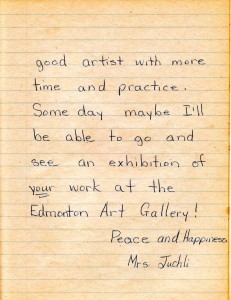 good artist with more
time and practice.
Some day maybe I'll
be able to go and
see an exhibition of
your work at the
Edmonton Art Gallery!
Peace and Happiness
Mrs Juchli